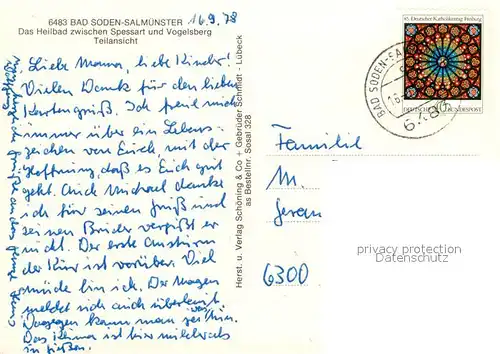 6483 BAD SODEN-SALMÜNSTER
16.9.78
Das Heilbad zwischen Spessart und Vogelsberg
Teilansicht
Liebe Mama, liebe Kinder!
Vielen Dank für den lieben
Kartengruß. Ich freue mich
immer über ein Lebens-
zeichen von Euch mit der
Hoffnung, daß es Euch gut
geht. Auch Michael danke
ich für seinen Gruß und
seinen Bruder vergißt er
nicht. Der erste Ansturm
der Kur ist vorüber. Viel
müde bin ich. Der Magen
meldet sich auch
Dagegen kann man
Das Klima ist hier
Herst. u. Verlag Schöning & Co + Gebrüder Schmidt - Lübeck
as Bestellnr. Sosal 328
85. Deutscher Katholikentag Freiburg
DEUTSCHE BUNDESPOST
BAD SODEN-SA
6483
Familie
M.
6300
privacy protection
Datenschutz